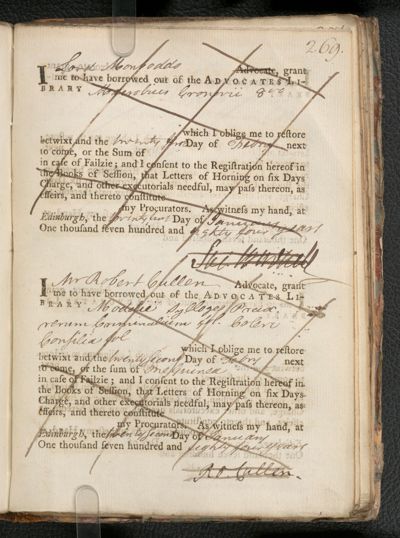 269.
I Lord Monboddo Advocate, grant
me to have borrowed out of the ADVOCATES LI-
BRARY Macrobius Gronovii 8vo
which I oblige me to restore
betwixt and the twenty first Day of Febry next
to come, or the Sum of
in case of Failzie; and I consent to the Registration hereof in
the Books of Session, that Letters of Horning on six Days
Charge, and other executorials needful, may pass thereon, as
effeirs, and thereto constitute
my Procurators. As witness my hand, at
Edinburgh, the Day of January
One thousand seven hundred and eighty four years
I Mr Robert Cullen Advocate, grant
me to have borrowed out of the ADVOCATES LI-
BRARY
rerum Criminalium 4to Coleri
Consilia fol
which I oblige me to restore
betwixt and the twenty second Day of Febry next
to come, or the sum of
in case of Failzie; and I consent to the Registration hereof in
the Books of Session, that Letters of Horning on six Days
Charge, and other executorials needful, may pass thereon, as
effeirs, and thereto constitute
my Procurators. As witness my hand, at
Edinburgh, the twenty second Day of January
One thousand seven hundred and eighty four years
Ro. Cullen.